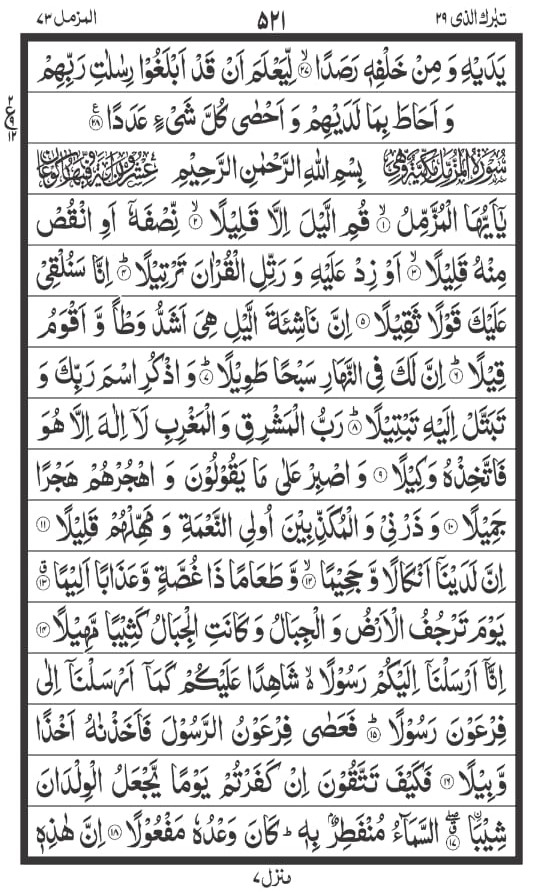 تبارك الذی ۲۹ ۵۲۱ المزمل ۷۳
یَدَیْهِ وَ مِنْ خَلْفِهٖ رَصَدًا ۙ﴿۲۷﴾ لِّیَعْلَمَ اَنْ قَدْ اَبْلَغُوْا رِسٰلٰتِ رَبِّهِمْ
وَ اَحَاطَ بِمَا لَدَیْهِمْ وَ اَحْصٰى كُلَّ شَیْءٍ عَدَدًا ﴿۲۸﴾
بِسْمِ اللّٰهِ الرَّحْمٰنِ الرَّحِیْمِ
یٰۤاَیُّهَا الْمُزَّمِّلُ ۙ﴿۱﴾ قُمِ الَّیْلَ اِلَّا قَلِیْلًا ۙ﴿۲﴾ نِّصْفَهٗۤ اَوِ انْقُصْ
مِنْهُ قَلِیْلًا ۙ﴿۳﴾ اَوْ زِدْ عَلَیْهِ وَ رَتِّلِ الْقُرْاٰنَ تَرْتِیْلًا ؕ﴿۴﴾ اِنَّا سَنُلْقِیْ
عَلَیْكَ قَوْلًا ثَقِیْلًا ﴿۵﴾ اِنَّ نَاشِئَةَ الَّیْلِ هِیَ اَشَدُّ وَطْاً وَّ اَقْوَمُ
قِیْلًا ؕ﴿۶﴾ اِنَّ لَكَ فِی النَّهَارِ سَبْحًا طَوِیْلًا ؕ﴿۷﴾ وَ اذْكُرِ اسْمَ رَبِّكَ وَ
تَبَتَّلْ اِلَیْهِ تَبْتِیْلًا ؕ﴿۸﴾ رَبُّ الْمَشْرِقِ وَ الْمَغْرِبِ لَاۤ اِلٰهَ اِلَّا هُوَ
فَاتَّخِذْهُ وَكِیْلًا ﴿۹﴾ وَ اصْبِرْ عَلٰى مَا یَقُوْلُوْنَ وَ اهْجُرْهُمْ هَجْرًا
جَمِیْلًا ﴿۱۰﴾ وَ ذَرْنِیْ وَ الْمُكَذِّبِیْنَ اُولِی النَّعْمَةِ وَ مَهِّلْهُمْ قَلِیْلًا ﴿۱۱﴾
اِنَّ لَدَیْنَاۤ اَنْكَالًا وَّ جَحِیْمًا ۙ﴿۱۲﴾ وَّ طَعَامًا ذَا غُصَّةٍ وَّ عَذَابًا اَلِیْمًا ۗ﴿۱۳﴾
یَوْمَ تَرْجُفُ الْاَرْضُ وَ الْجِبَالُ وَ كَانَتِ الْجِبَالُ كَثِیْبًا مَّهِیْلًا ﴿۱۴﴾
اِنَّاۤ اَرْسَلْنَاۤ اِلَیْكُمْ رَسُوْلًا ۙ۬ شَاهِدًا عَلَیْكُمْ كَمَاۤ اَرْسَلْنَاۤ اِلٰى
فِرْعَوْنَ رَسُوْلًا ؕ﴿۱۵﴾ فَعَصٰى فِرْعَوْنُ الرَّسُوْلَ فَاَخَذْنٰهُ اَخْذًا
وَّبِیْلًا ﴿۱۶﴾ فَكَیْفَ تَتَّقُوْنَ اِنْ كَفَرْتُمْ یَوْمًا یَّجْعَلُ الْوِلْدَانَ
شِیْبَا ۗۖ﴿۱۷﴾ السَّمَآءُ مُنْفَطِرٌۢ بِهٖ ؕ كَانَ وَعْدُهٗ مَفْعُوْلًا ﴿۱۸﴾ اِنَّ هٰذِهٖ
منزل ۷